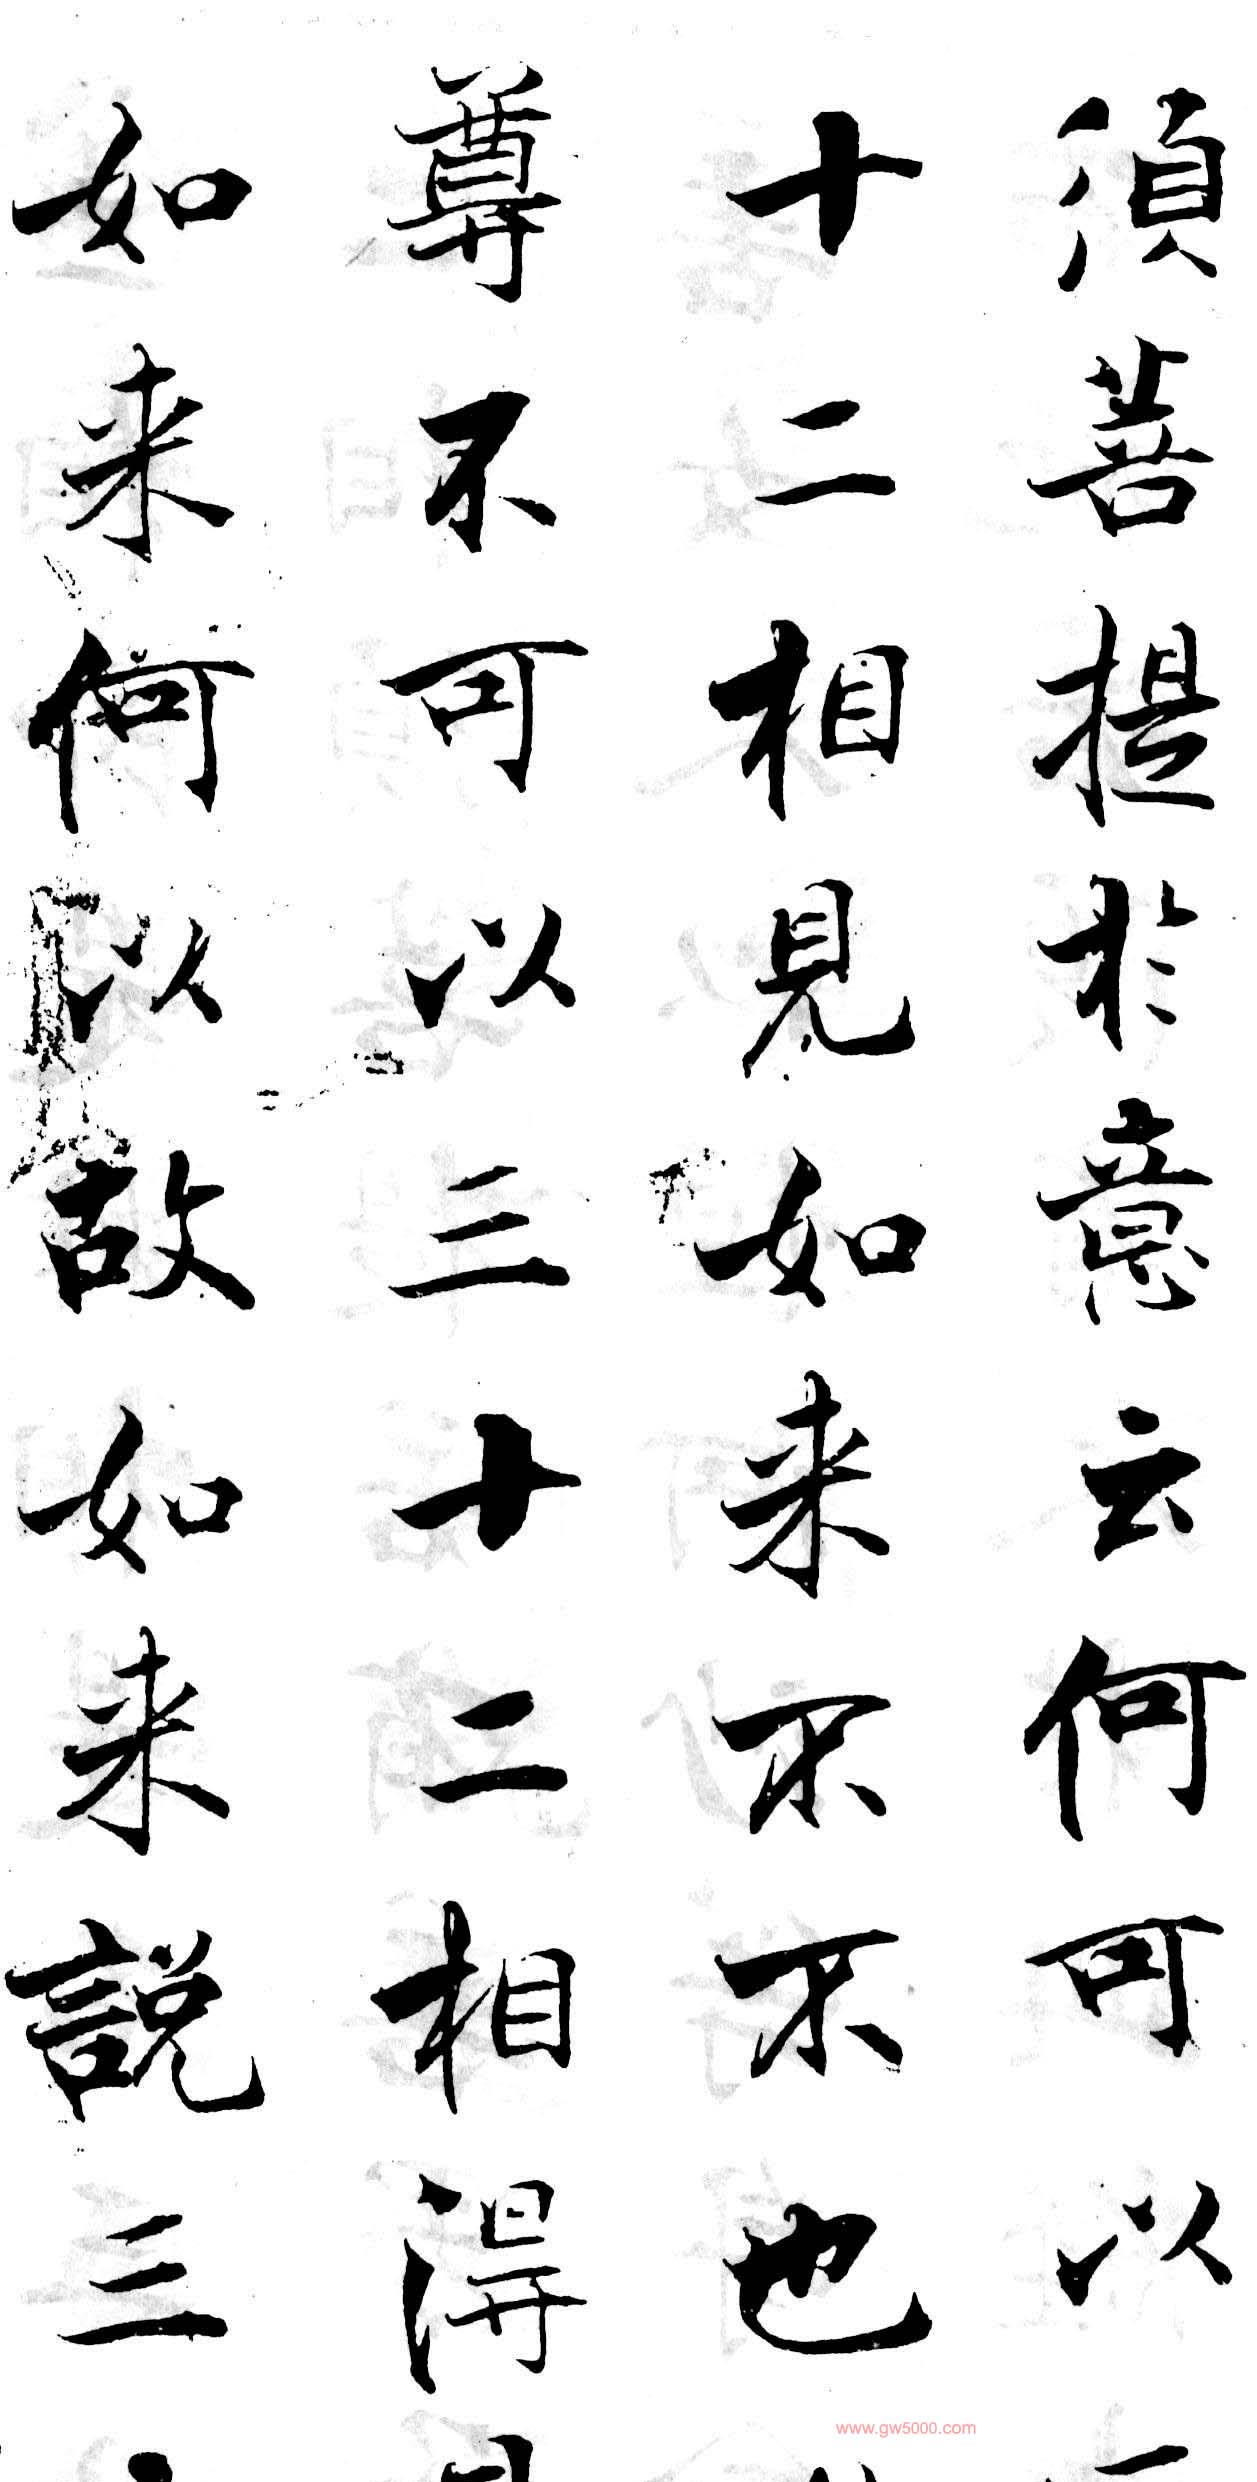 須菩提於意云何可以
十二相見如来不不也
尊不可以三十二相得
如来何以故如来説三
www.gw5000.com